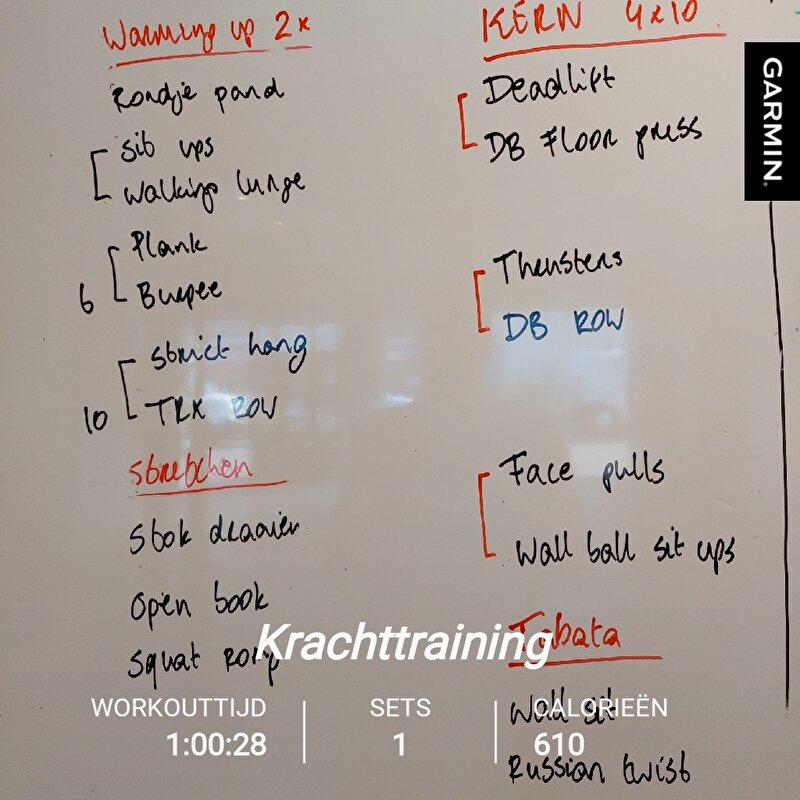 Warming up 2x
Rondje pand
Sit ups
Walking lunge
Plank
6 Burpee
Strict hang
10 TRX ROW
Stretchen
Stok draaien
Open book
Squat romp
KERN 4x10
Deadlift
DB Floor press
Thrusters
DB ROW
Face pulls
Wall ball sit ups
Tabata
Wall sit
Russian twist
GARMIN.
Krachttraining
WORKOUTTIJD
1:00:28
SETS
1
CALORIEËN
610